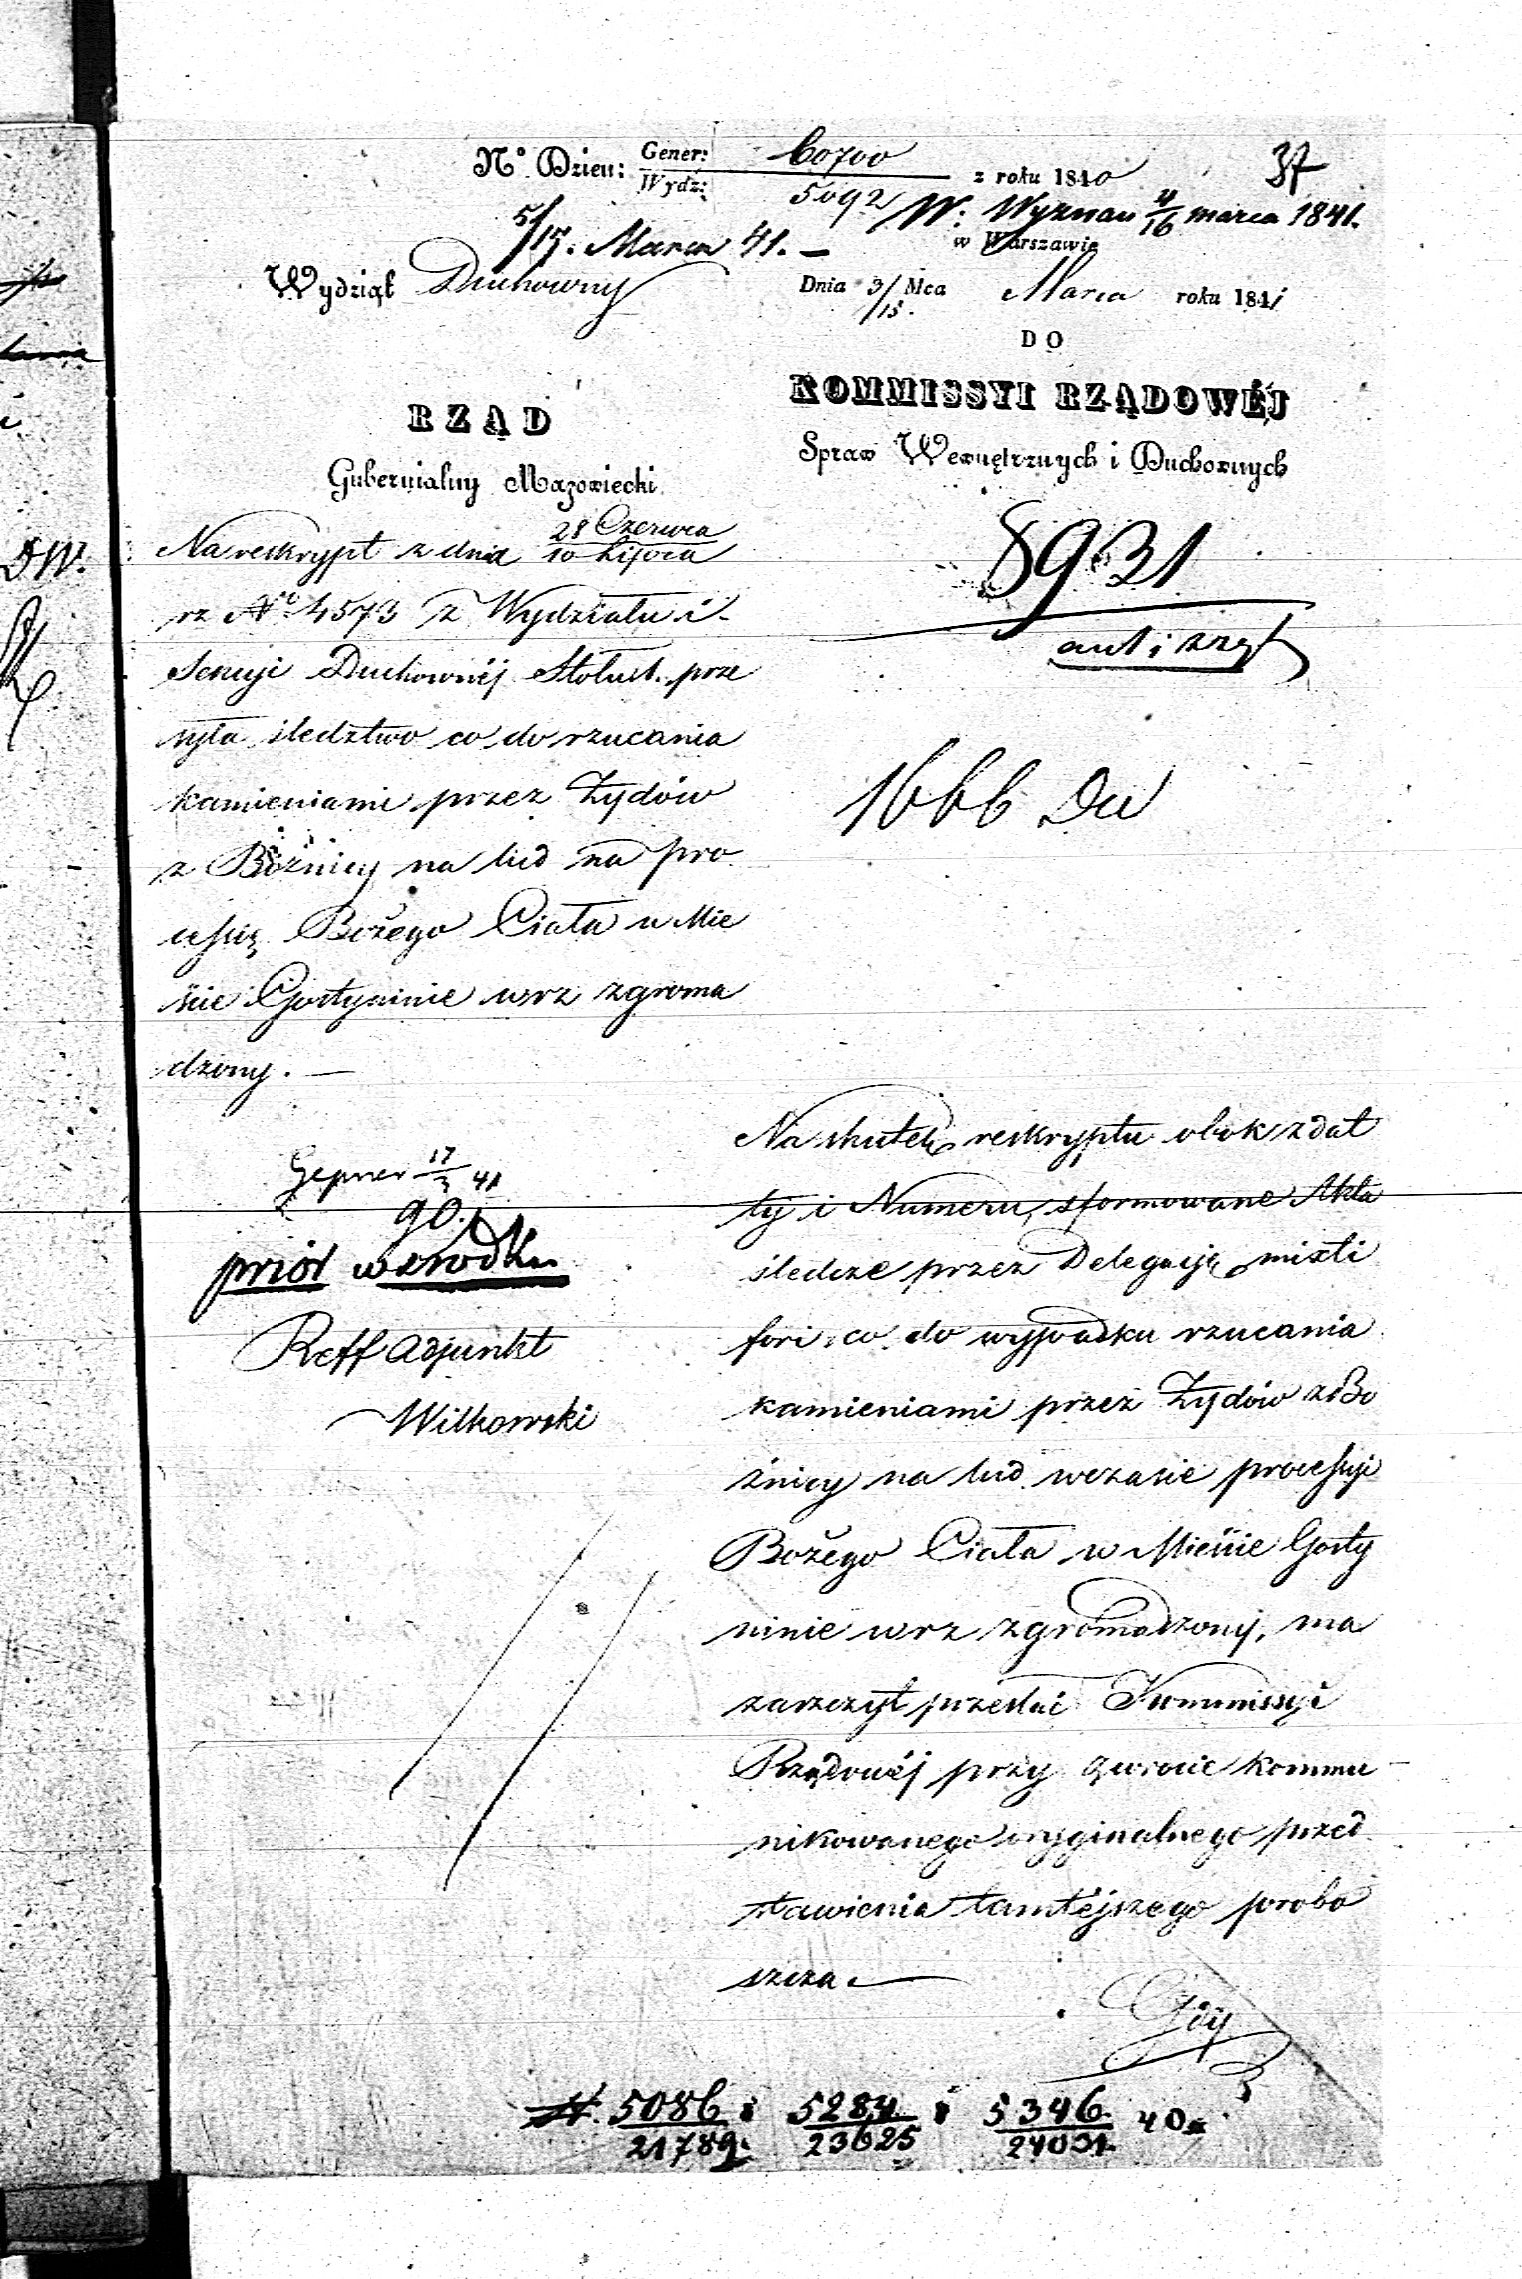 37
N° Dzien: Gener: 60700
Wydz: 5092
z roku 1840
W. Wyznań 4/16 marca 1841.
5/17. Marca 41. –
w Warszawie
Wydział Duchowny
Dnia 3/15. Mca Marca roku 1841
DO
KOMMISSYI RZĄDOWÉJ
Spraw Wewnętrznych i Duchownych
RZĄD
Gubernialny Mazowiecki
Na reskrypt z dnia 28 Czerwca
10 Lipca
rz Nº 4573 z Wydziału i
Sekcyi Duchownéj prze
syła śledztwo co do rzucania
kamieniami przez Żydów
z Bóżnicy na lud na pro
cessię Bożego Ciała w Mie
ście Gostyninie wrz zgroma
dzony. —
8931
1666 Du
Gepner 17/3 41
90.
Reff Adjunkt
Wilkowski
Na skutek reskryptu obok z dat
ty i Numeru, sformowane Akta
śledcze przez Delegacyję mixti
fori co do wypadku rzucania
kamieniami przez Żydów z Bo
żnicy na lud wczasie processyi
Bożego Ciała w Mieście Gosty
ninie wrz zgromadzony, ma
zaszczyt przesłać Kommissyi
Rządowéj przy zwrocie kommu
nikowanego oryginalnego przed
stawienia tamtéjszego probo
szcza —
N. 5086 i 5284 i 5346 40
21789. 23625 24031.